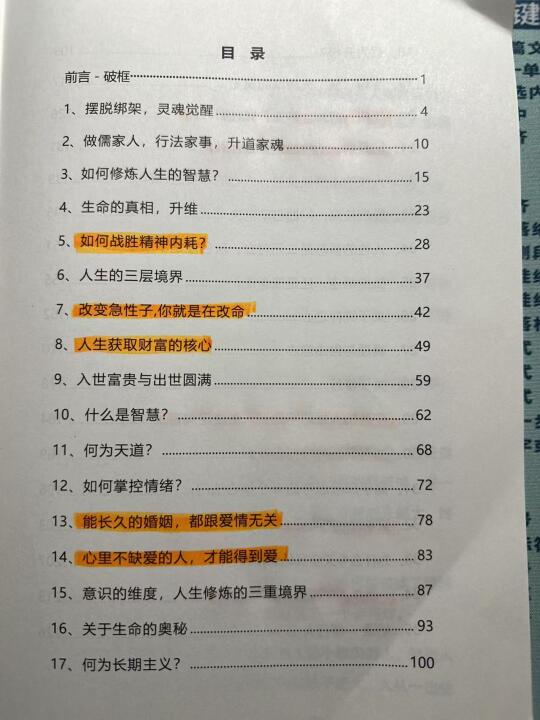 目 录
前言 - 破框 1
1、摆脱绑架，灵魂觉醒 4
2、做儒家人，行法家事，升道家魂 10
3、如何修炼人生的智慧？ 15
4、生命的真相，升维 23
5、如何战胜精神内耗？ 28
6、人生的三层境界 37
7、改变急性子,你就是在改命 42
8、人生获取财富的核心 49
9、入世富贵与出世圆满 59
10、什么是智慧？ 62
11、何为天道？ 68
12、如何掌控情绪？ 72
13、能长久的婚姻，都跟爱情无关 78
14、心里不缺爱的人，才能得到爱 83
15、意识的维度，人生修炼的三重境界 87
16、关于生命的奥秘 93
17、何为长期主义？ 100